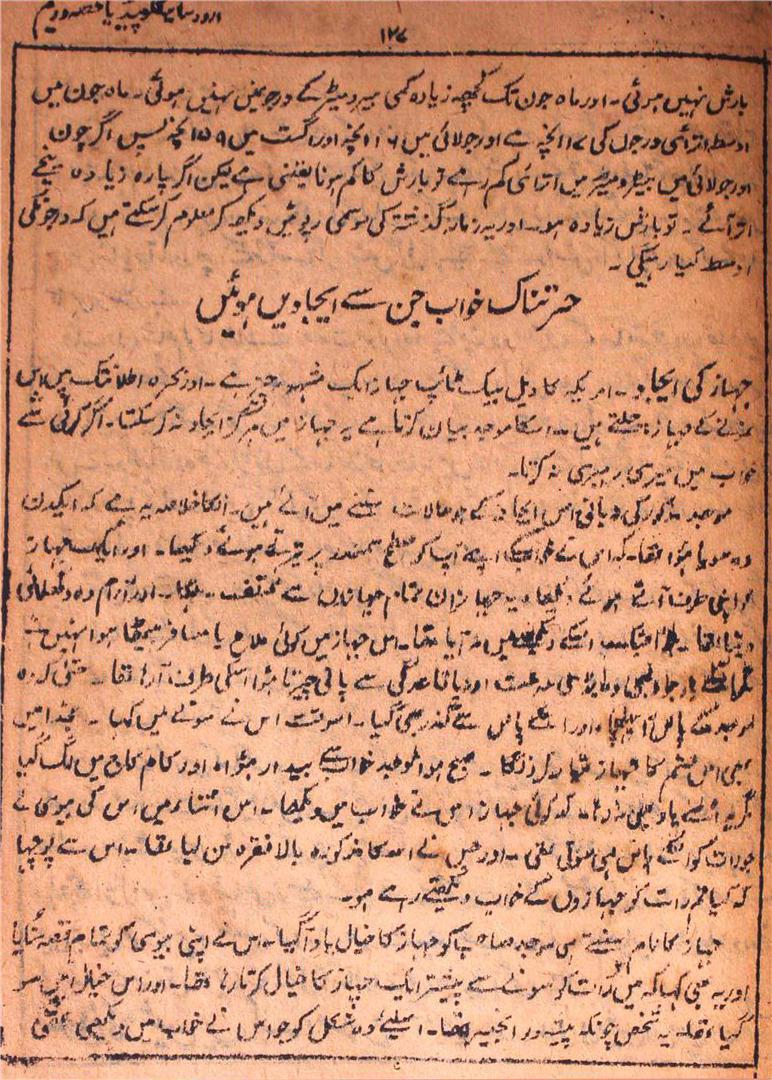 ۱۲۷
بارش نہیں ہوئی۔ اور ماہ جون تک کچھ زیادہ کمی بیرومیٹر کے درجوں میں نہیں ہوئی۔ ماہ جون میں
اوسط اترائی درجوں کی ۱۷ انچہ ہے اور جولائی میں ۱۶ انچہ اور اگست میں ۱۵۹ انچہ پس اگر جون
اور جولائی میں بیرومیٹر میں اترائی کم رہے تو بارش کا کم ہونا یقینی ہے لیکن اگر پارہ زیادہ نیچے
اتر آئے۔ تو بارش زیادہ ہو۔ اور یہ زمانہ گذشتہ کی موسمی رپوٹیں دیکھ کر معلوم کر سکتے ہیں کہ درجونکی
اوسط کیا رہیگی۔
حیرتناک خواب جن سے ایجادیں ہوئیں
جہاز کی ایجاد۔ امریکہ کا ویل بیک ٹائپ جہاز ایک مشہور چیز ہے۔ اور بحرہ اطلانتک میں اس
نمونے کے جہاز چلتے ہیں۔ اسکا موجد بیان کرتا ہے یہ جہاز میں ہرگز ایجاد نہ کر سکتا۔ اگر کوئی شے
خواب میں میری رہبری نہ کرتا۔
موجد مذکور کی زبانی اس ایجاد کے جو حالات سننے میں آئے ہیں۔ انکا خلاصہ یہ ہے کہ ایکدن
وہ سویا ہوا تھا۔ کہ اس نے اپنے آپ کو سطح سمندر پر تیرتے ہوئے دیکھا۔ اور ایک جہاز
کو اپنی طرف آتے ہوئے دیکھا۔ یہ جہاز ان تمام جہازوں سے مختلف تھا۔
اس جہاز میں کوئی ملاح یا مسافر بیٹھا ہوا نہیں
سے پانی چیرتا ہوا اسکی طرف آ رہا تھا۔ حتیٰ کہ وہ
موجد کے پاس آ پہنچا اور اس کے پاس سے گذر بھی گیا۔ اسوقت اس نے سوتے میں کہا۔ بخدا میں
بھی اس قسم کا جہاز تیار کرونگا۔ صبح ہوا تو موجد خواب سے بیدار ہوا اور کام کاج میں لگ گیا
مگر یہ اسے یاد بھی نہ رہا۔ کہ کوئی جہاز اس نے خواب میں دیکھا۔ اس اثناء میں اس کی بیوی نے
جو رات کو اسکے پاس ہی سوتی تھی۔ اور جس نے اسکا مذکورہ بالا فقرہ سن لیا تھا۔ اس سے پوچھا
کہ کیا تم رات کو جہازوں کے خواب دیکھتے رہے ہو۔
جہاز کا نام سنتے ہی موجد صاحب کو جہاز کا خیال یاد آ گیا۔ اس نے اپنی بیوی کو تمام قصہ سُنایا
اور یہ بھی کہا کہ میں رات کو سونے سے پیشتر ایک جہاز کا خیال کرتا رہا تھا۔ اور اس خیال میں سو
گیا تھا۔ یہ شخص چونکہ پیشہ ور انجینیر تھا۔ اسلیئے وہ شکل کو جو اس نے خواب میں دیکھی تھی